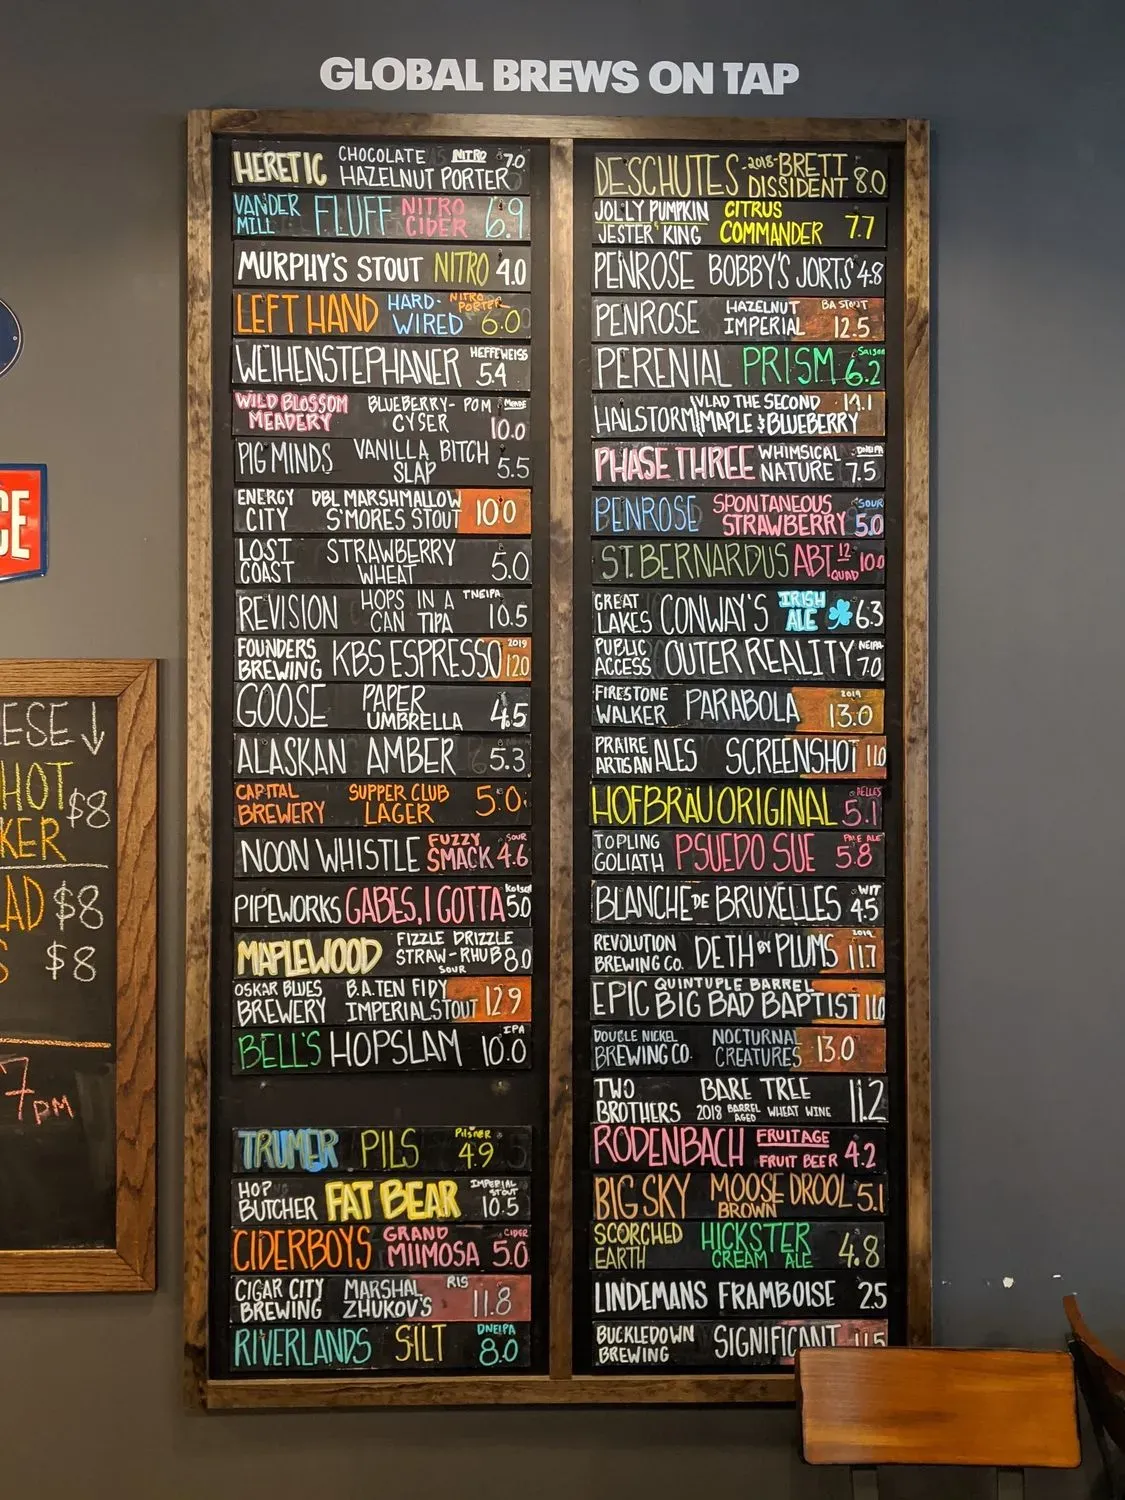 GLOBAL BREWS ON TAP
HERETIC CHOCOLATE NITRO 7.0
HAZELNUT PORTER
VANDER MILL FLUFF NITRO CIDER 6.9
MURPHY'S STOUT NITRO 4.0
LEFT HAND HARD-WIRED NITRO PORTER 6.0
WEIHENSTEPHANER HEFFEWEISS 5.4
WILD BLOSSOM MEADERY BLUEBERRY-POM CYSER 10.0
PIG MINDS VANILLA BITCH SLAP 5.5
ENERGY CITY DBL MARSHMALLOW S'MORES STOUT 10.0
LOST COAST STRAWBERRY WHEAT 5.0
REVISION HOPS IN A CAN TIPA TNEIPA 10.5
FOUNDERS BREWING KBS ESPRESSO 2019 12.0
GOOSE PAPER UMBRELLA 4.5
ALASKAN AMBER 5.3
CAPITAL BREWERY SUPPER CLUB LAGER 5.0
NOON WHISTLE FUZZY SMACK SOUR 4.6
PIPEWORKS GABES, I GOTTA Kolsch 5.0
MAPLEWOOD FIZZLE DRIZZLE STRAW-RHUB SOUR 8.0
OSKAR BLUES BREWERY B.A. TEN FIDY IMPERIAL STOUT 12.9
BELL'S HOPSLAM IPA 10.0
TRUMER PILS Pilsner 4.9
HOP BUTCHER FAT BEAR IMPERIAL STOUT 10.5
CIDERBOYS GRAND MIIMOSA CIDER 5.0
CIGAR CITY BREWING MARSHAL ZHUKOV'S RIS 11.8
RIVERLANDS SILT DNEIPA 8.0
DESCHUTES -2018- BRETT DISSIDENT 8.0
JOLLY PUMPKIN JESTER KING CITRUS COMMANDER 7.7
PENROSE BOBBY'S JORTS 4.8
PENROSE HAZELNUT IMPERIAL BA STOUT 12.5
PERENIAL PRISM Saison 6.2
HAILSTORM VLAD THE SECOND MAPLE & BLUEBERRY
PHASE THREE WHIMSICAL NATURE DNEIPA 7.5
PENROSE SPONTANEOUS STRAWBERRY SOUR 5.0
ST. BERNARDUS ABT 12 QUAD 10.0
GREAT LAKES CONWAY'S IRISH ALE 6.3
PUBLIC ACCESS OUTER REALITY NEIPA 7.0
FIRESTONE WALKER PARABOLA 2019 13.0
PRAIRE ARTISAN ALES SCREENSHOT 11.0
HOFBRÄU ORIGINAL HELLES 5.1
TOPLING GOLIATH PSUEDO SUE PALE ALE 5.8
BLANCHE DE BRUXELLES WIT 4.5
REVOLUTION BREWING CO. DETH BY PLUMS 2019 11.7
EPIC QUINTUPLE BARREL BIG BAD BAPTIST 11.0
DOUBLE NICKEL BREWING CO. NOCTURNAL CREATURES 13.0
TWO BROTHERS BARE TREE 2018 BARREL AGED WHEAT WINE 11.2
RODENBACH FRUITAGE FRUIT BEER 4.2
BIG SKY MOOSE DROOL BROWN 5.1
SCORCHED EARTH HICKSTER CREAM ALE 4.8
LINDEMANS FRAMBOISE 2.5
BUCKLEDOWN BREWING SIGNIFICANT 11.5
CE
ESE ↓
HOT $8
KER
AD $8
S $8
7 PM